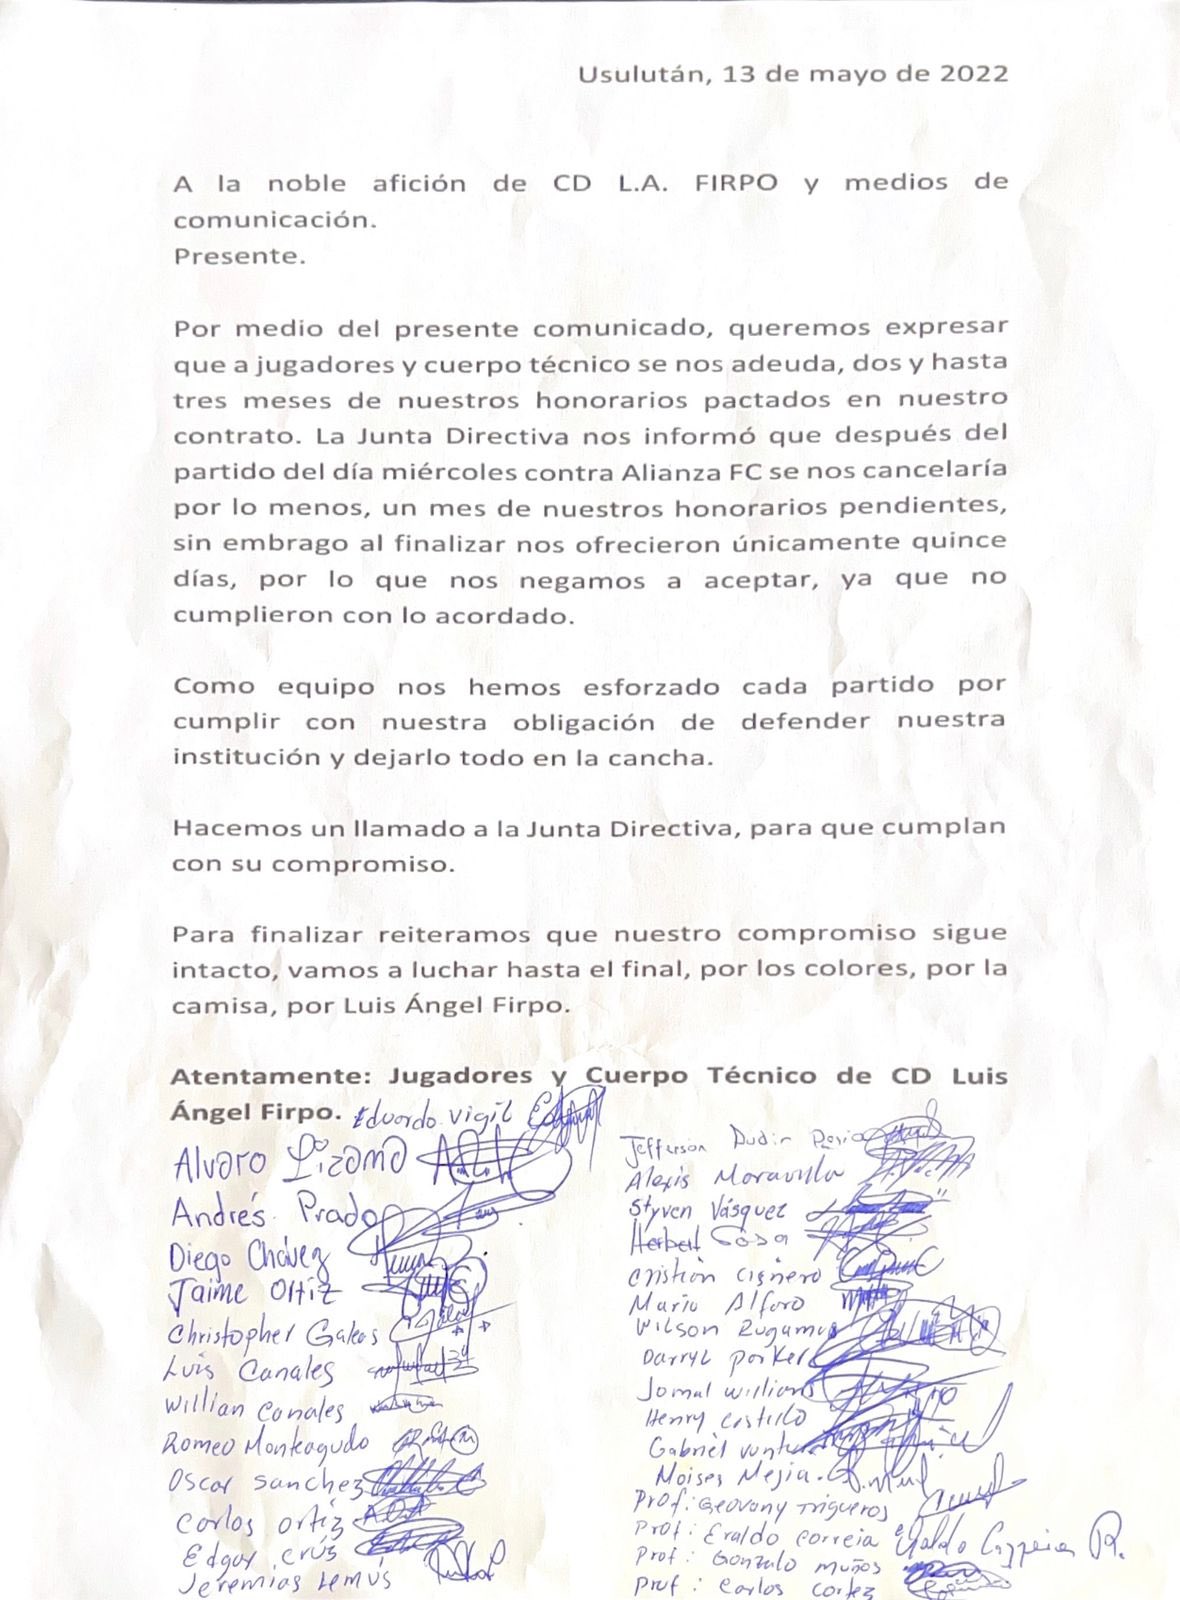 Usulután, 13 de mayo de 2022
A la noble afición de CD L.A. FIRPO y medios de
comunicación.
Presente.
Por medio del presente comunicado, queremos expresar
que a jugadores y cuerpo técnico se nos adeuda, dos y hasta
tres meses de nuestros honorarios pactados en nuestro
contrato. La Junta Directiva nos informó que después del
partido del día miércoles contra Alianza FC se nos cancelaría
por lo menos, un mes de nuestros honorarios pendientes,
sin embrago al finalizar nos ofrecieron únicamente quince
días, por lo que nos negamos a aceptar, ya que no
cumplieron con lo acordado.
Como equipo nos hemos esforzado cada partido por
cumplir con nuestra obligación de defender nuestra
institución y dejarlo todo en la cancha.
Hacemos un llamado a la Junta Directiva, para que cumplan
con su compromiso.
Para finalizar reiteramos que nuestro compromiso sigue
intacto, vamos a luchar hasta el final, por los colores, por la
camisa, por Luis Ángel Firpo.
Atentamente: Jugadores y Cuerpo Técnico de CD Luis
Ángel Firpo. Eduardo vigil
Alvaro Lizama
Andrés Prado
Diego Chávez
Jaime Ortiz
Christopher Galeas
Luis Canales
Willian Canales
Romeo Monteagudo
Oscar Sanchez
Carlos Ortiz
Edgar cruz
Jeremias Lemus
Jefferson
Alexis Maravilla
Styven Vásquez
Herbert Sosa
Cristian Cisnero
Mario Alfaro
Wilson Rugamas
Darryl parker
Jomal Willians
Henry Castillo
Gabriel
Moises Mejia.
Prof: Geovony Trigueros
Prof: Eraldo Correia
Prof: Gonzalo muños
Prof: Carlos Cortez